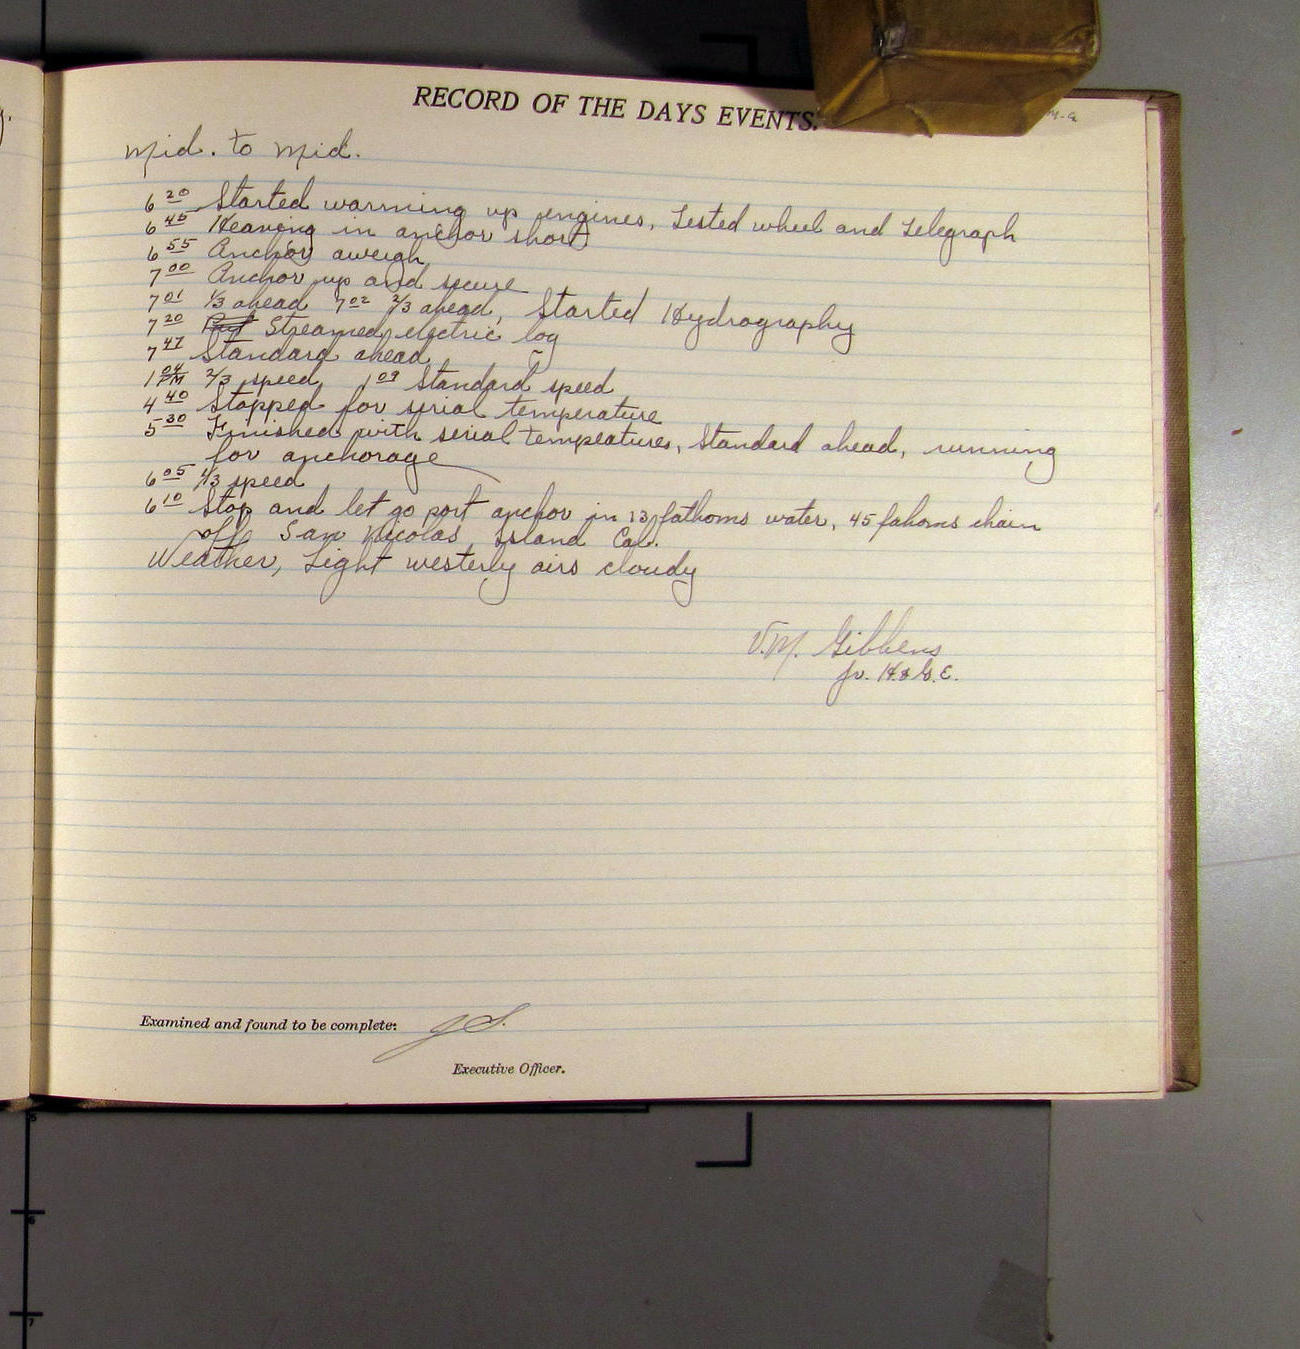 RECORD OF THE DAYS EVENTS.
Mid. to Mid.
6 20 Started warming up engines, Tested wheel and Telegraph
6 45 Heaving in anchor short
6 55 Anchor aweigh
7 00 Anchor up and secure
7 01 1/3 ahead 7 02 2/3 ahead, Started Hydrography
7 20 Streamed electric log
7 47 Standard ahead
1 04 PM 2/3 speed, 1 09 Standard speed
4 40 Stopped for serial temperature
5 30 Finished with serial tempeatures, Standard ahead, running
for anchorage
6 05 1/3 speed
6 10 Stop and let go port anchor in 13 fathoms water, 45 fahoms chain
off San Nicolas Island Cal.
Weather, Light westerly airs cloudy
V.M. Gibbens
Jr. H.& G.E.
Examined and found to be complete:
Executive Officer.
5
6
7